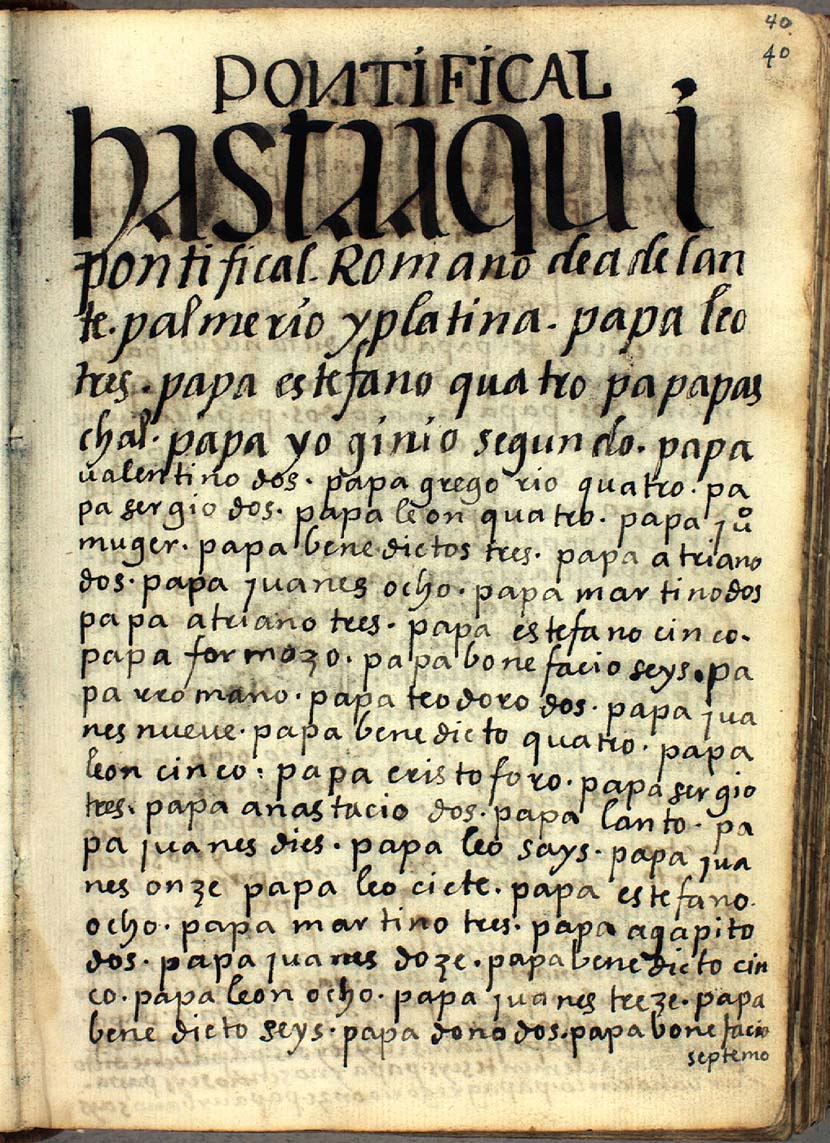 40
40
PONTIFICAL
hastaaqui
pontifical. Romano deadelan
te. palmerio yplatina. papa leo
tres. papa estefano quatro papapas
chal. papa yoginio segundo. papa
ualentino dos. papa gregorio quatro. pa
pa sergio dos. papa leon quatro. papa juº
muger. papa benedictos tres. papa atriano
dos. papa juanes ocho. papa martinodos
papa atriano tres. papa estefano cinco.
papa formozo. papa bonefacio seys. pa
pa rromano. papa teodoro dos. papa jua
nes nueue. papa benedicto quatro. papa
leon cinco: papa cristoforo. papa sergio
tres. papa anastacio dos. papa lanto. pa
pa juanes dies. papa leo says. papa jua
nes onze papa leo ciete. papa estefano
ocho. papa martino tres. papa agapito
dos. papa juanes doze. papa benedicto cin
co. papa leon ocho. papa juanes treze. papa
benedicto seys. papa dono dos. papa bonefacio
septemo